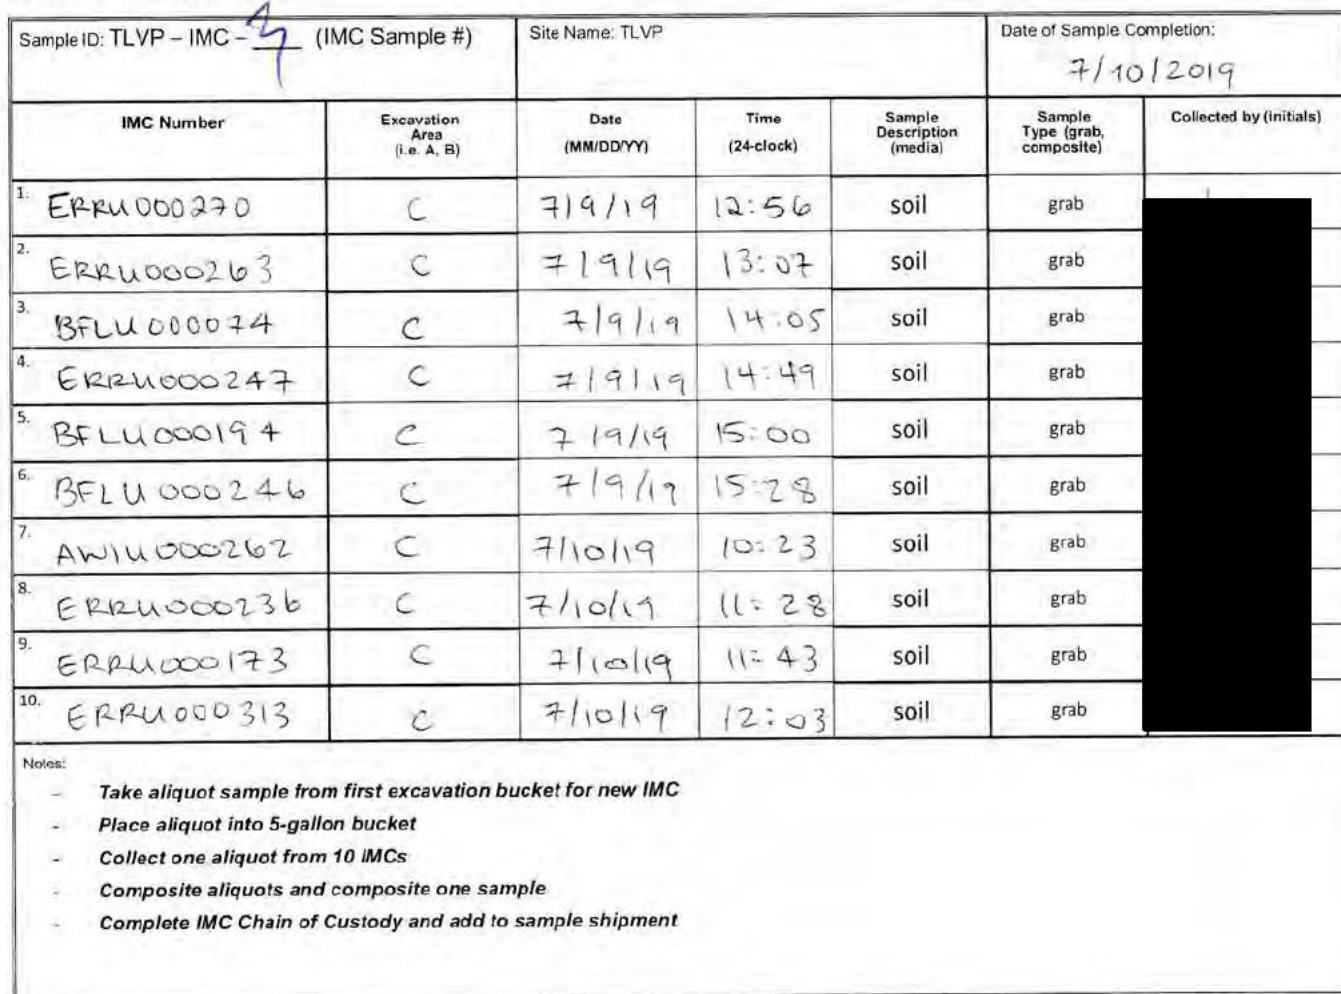 Sample ID: TLVP – IMC – (IMC Sample #)
Site Name: TLVP
Date of Sample Completion:
7/10/2019
IMC Number
Excavation
Area
(i.e. A, B)
Date
(MM/DD/YY)
Time
(24-clock)
Sample
Description
(media)
Sample
Type (grab,
composite)
Collected by (initials)
1. ERRU000270 C 7/9/19 12:56 soil grab
2. ERRU000263 C 7/9/19 13:07 soil grab
3. BFLU000074 C 7/9/19 14:05 soil grab
4. ERRU000247 C 7/9/19 14:49 soil grab
5. BFLU000194 C 7/9/19 15:00 soil grab
6. BFLU000246 C 7/9/19 15:28 soil grab
7. AWIU000262 C 7/10/19 10:23 soil grab
8. ERRU000236 C 7/10/19 11:28 soil grab
9. ERRU000173 C 7/10/19 11:43 soil grab
10. ERRU000313 C 7/10/19 12:03 soil grab
Notes:
- Take aliquot sample from first excavation bucket for new IMC
- Place aliquot into 5-gallon bucket
- Collect one aliquot from 10 IMCs
- Composite aliquots and composite one sample
- Complete IMC Chain of Custody and add to sample shipment